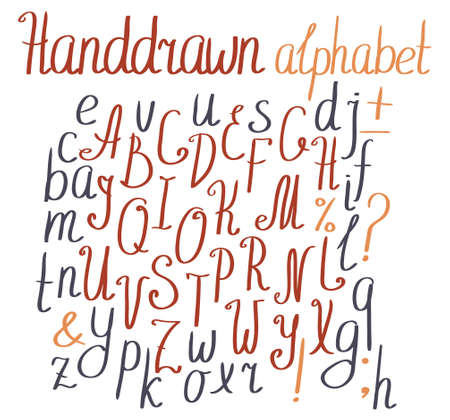 Handdrawn alphabet
e v u s d j ±
c A B C D E F G H f
b a J Q I O K M % i ?
m l
t n U V S T P R N L q
& y Z w W Y X g ;
z p k o x r ! , h